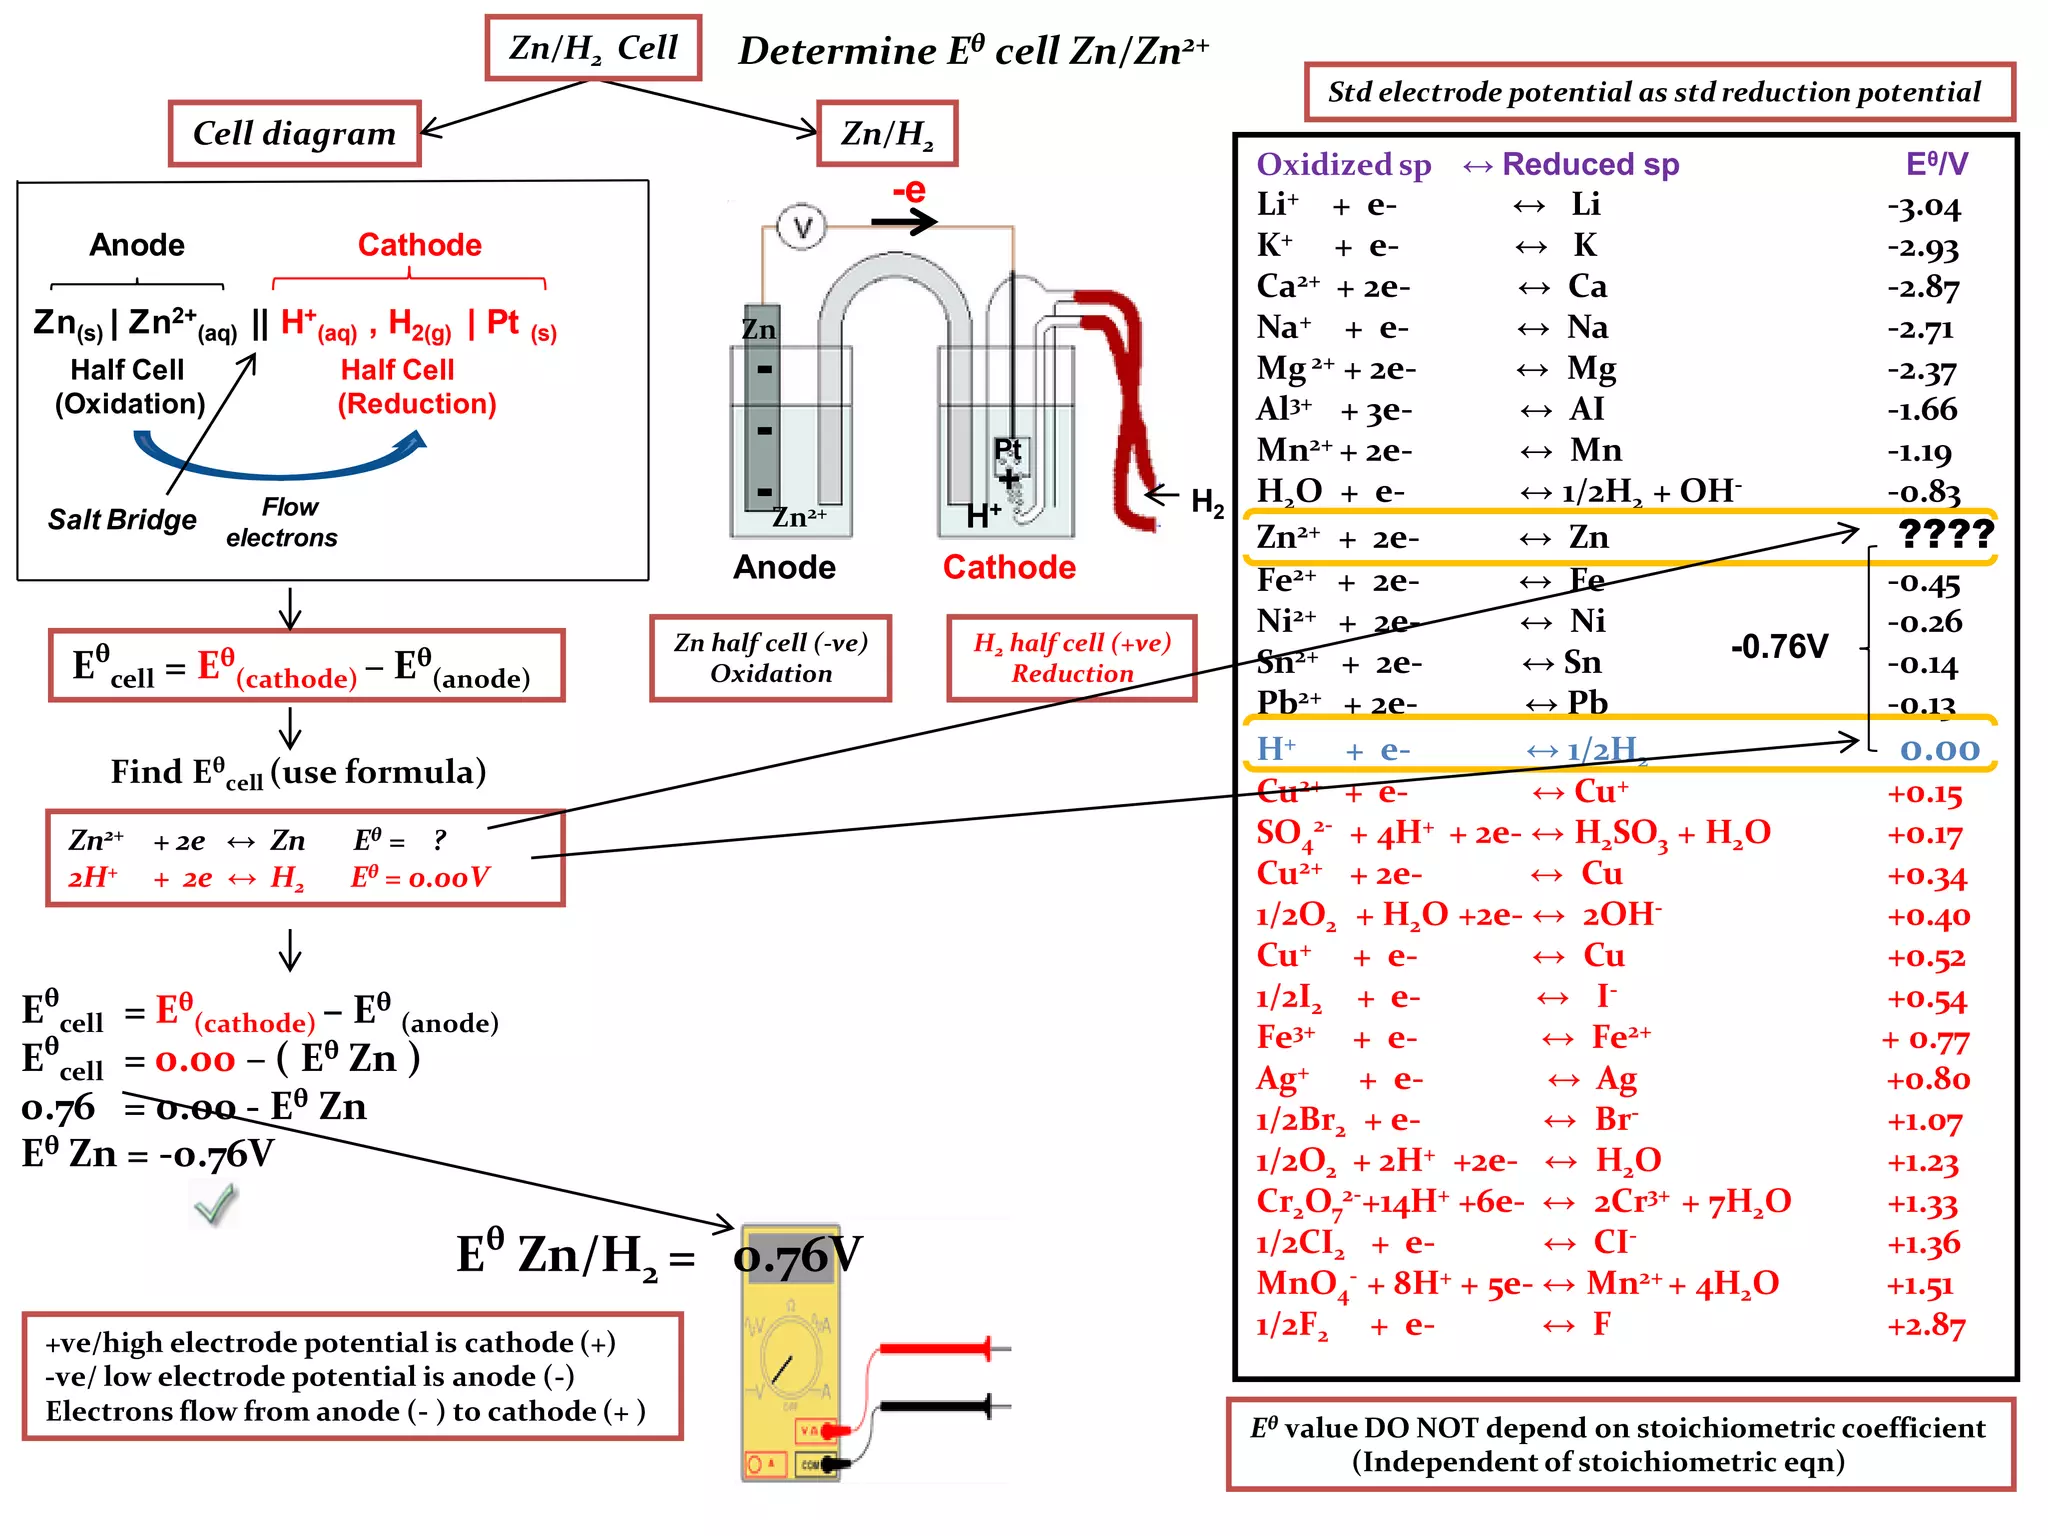 Zn/H₂ Cell
Determine Eᶿ cell Zn/Zn²⁺
Cell diagram
Zn/H₂
Anode Cathode
Zn(s) | Zn²⁺(aq) || H⁺(aq) , H₂(g) | Pt (s)
Half Cell Half Cell
(Oxidation) (Reduction)
Salt Bridge
Flow
electrons
-e
V
Zn
-
-
-
Zn²⁺
Pt
+
H⁺
H₂
Anode Cathode
Zn half cell (-ve)
Oxidation
H₂ half cell (+ve)
Reduction
Eᶿcell = Eᶿ(cathode) – Eᶿ(anode)
Find Eᶿcell (use formula)
Zn²⁺ + 2e ↔ Zn Eᶿ = ?
2H⁺ + 2e ↔ H₂ Eᶿ = 0.00V
Eᶿcell = Eᶿ(cathode) – Eᶿ (anode)
Eᶿcell = 0.00 – ( Eᶿ Zn )
0.76 = 0.00 - Eᶿ Zn
Eᶿ Zn = -0.76V
Eᶿ Zn/H₂ = 0.76V
Ω
V A
V A
OFF
V Ω
A COM
+ve/high electrode potential is cathode (+)
-ve/ low electrode potential is anode (-)
Electrons flow from anode (- ) to cathode (+ )
Std electrode potential as std reduction potential
Oxidized sp ↔ Reduced sp Eᶿ/V
Li⁺ + e- ↔ Li -3.04
K⁺ + e- ↔ K -2.93
Ca²⁺ + 2e- ↔ Ca -2.87
Na⁺ + e- ↔ Na -2.71
Mg ²⁺ + 2e- ↔ Mg -2.37
Al³⁺ + 3e- ↔ AI -1.66
Mn²⁺ + 2e- ↔ Mn -1.19
H₂O + e- ↔ 1/2H₂ + OH⁻ -0.83
Zn²⁺ + 2e- ↔ Zn ????
Fe²⁺ + 2e- ↔ Fe -0.45
Ni²⁺ + 2e- ↔ Ni -0.26
-0.76V
Sn²⁺ + 2e- ↔ Sn -0.14
Pb²⁺ + 2e- ↔ Pb -0.13
H⁺ + e- ↔ 1/2H₂ 0.00
Cu²⁺ + e- ↔ Cu⁺ +0.15
SO₄²⁻ + 4H⁺ + 2e- ↔ H₂SO₃ + H₂O +0.17
Cu²⁺ + 2e- ↔ Cu +0.34
1/2O₂ + H₂O +2e- ↔ 2OH⁻ +0.40
Cu⁺ + e- ↔ Cu +0.52
1/2I₂ + e- ↔ I⁻ +0.54
Fe³⁺ + e- ↔ Fe²⁺ + 0.77
Ag⁺ + e- ↔ Ag +0.80
1/2Br₂ + e- ↔ Br⁻ +1.07
1/2O₂ + 2H⁺ +2e- ↔ H₂O +1.23
Cr₂O₇²⁻+14H⁺ +6e- ↔ 2Cr³⁺ + 7H₂O +1.33
1/2CI₂ + e- ↔ CI⁻ +1.36
MnO₄⁻ + 8H⁺ + 5e- ↔ Mn²⁺ + 4H₂O +1.51
1/2F₂ + e- ↔ F +2.87
Eᶿ value DO NOT depend on stoichiometric coefficient
(Independent of stoichiometric eqn)